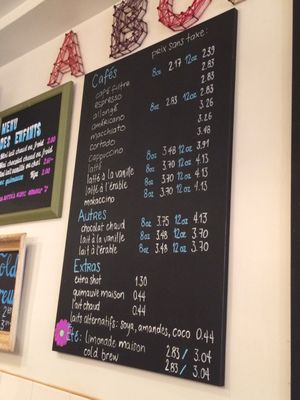 ABC
prix sans taxe:
Cafés
café filtre 8oz 2.17 12oz 2.39
espresso 2.83
allongé 2.83
américano 8oz 2.83 12oz 3.26
macchiato 3.26
cortado 3.48
cappuccino 8oz 3.48 12oz 3.91
latté 8oz 3.48 12oz 3.91
latté à la vanille 8oz 3.70 12oz 4.13
latté à l'érable 8oz 3.70 12oz 4.13
mokaccino 8oz 3.70 12oz 4.13
Autres
chocolat chaud 8oz 3.75 12oz 4.13
lait à la vanille 8oz 3.48 12oz 3.70
lait à l'érable 8oz 3.48 12oz 3.70
Extras
extra shot 1.30
guimauve maison 0.44
lait chaud 0.44
laits alternatifs: soya, amandes, coco 0.44
Été: limonade maison 2.83 / 3.04
cold brew 2.83 / 3.04
MENU
DES ENFANTS
chaud ou froid 2.00